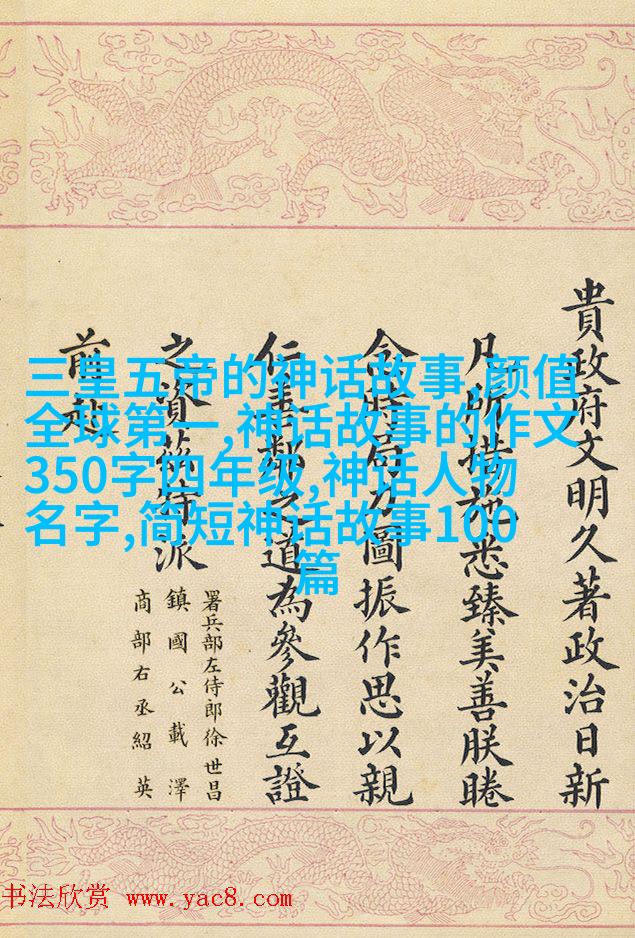 三皇五帝的神话故事,颜值
全球第一,神话故事的作文
350字四年级,神话人物
名字,简短神话故事100
篇
貴政府文明久著政治日新
凡所措施悉臻美善朕睠
念時局力圖振作思以親
仁善鄰之道為參觀互證
之資茲特派
署兵部左侍郎徐世昌
鎮國公載澤
商部右丞紹英
前赴
书法欣赏 www.yac8.com